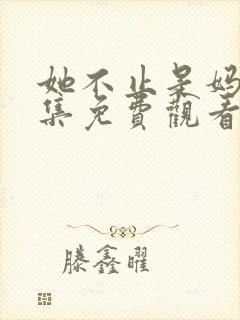 她不止是妈
集免費觀看
滕鑫曜